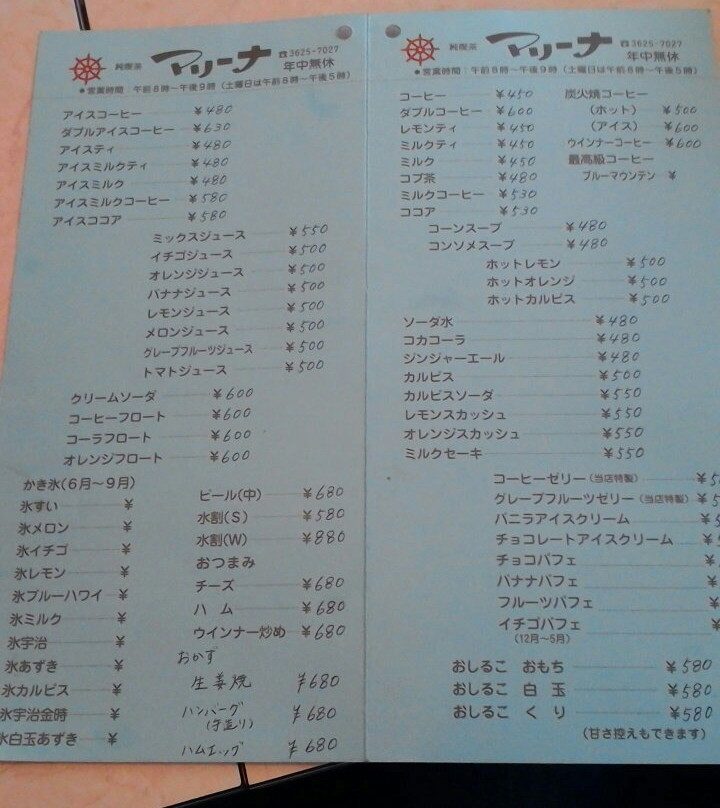 純喫茶 マリーナ ☎3625-7027
年中無休
●営業時間：午前8時〜午後9時（土曜日は午前8時〜午後5時）
アイスコーヒー ¥480
ダブルアイスコーヒー ¥630
アイスティ ¥480
アイスミルクティ ¥480
アイスミルク ¥480
アイスミルクコーヒー ¥580
アイスココア ¥580
ミックスジュース ¥550
イチゴジュース ¥500
オレンジジュース ¥500
バナナジュース ¥500
レモンジュース ¥500
メロンジュース ¥500
グレープフルーツジュース ¥500
トマトジュース ¥500
クリームソーダ ¥600
コーヒーフロート ¥600
コーラフロート ¥600
オレンジフロート ¥600
かき氷(6月〜9月)
氷すい ¥
氷メロン ¥
氷イチゴ ¥
氷レモン ¥
氷ブルーハワイ ¥
氷ミルク ¥
氷宇治 ¥
氷あずき ¥
氷カルピス ¥
氷宇治金時 ¥
氷白玉あずき ¥
ビール(中) ¥680
水割(S) ¥580
水割(W) ¥880
おつまみ
チーズ ¥680
ハム ¥680
ウインナー炒め ¥680
おかず
生姜焼 ¥680
ハンバーグ ¥680
(手造り)
ハムエッグ ¥680
純喫茶 マリーナ ☎3625-7027
年中無休
●営業時間：午前8時〜午後9時（土曜日は午前8時〜午後5時）
コーヒー ¥450
ダブルコーヒー ¥600
レモンティ ¥450
ミルクティ ¥450
ミルク ¥450
コブ茶 ¥480
ミルクコーヒー ¥530
ココア ¥530
炭火焼コーヒー
(ホット) ¥500
(アイス) ¥600
ウインナーコーヒー ¥600
最高級コーヒー
ブルーマウンテン ¥
コーンスープ ¥480
コンソメスープ ¥480
ホットレモン ¥500
ホットオレンジ ¥500
ホットカルピス ¥500
ソーダ水 ¥480
コカコーラ ¥480
ジンジャーエール ¥480
カルピス ¥500
カルピスソーダ ¥550
レモンスカッシュ ¥550
オレンジスカッシュ ¥550
ミルクセーキ ¥550
コーヒーゼリー(当店特製) ¥
グレープフルーツゼリー(当店特製) ¥
バニラアイスクリーム ¥
チョコレートアイスクリーム ¥
チョコパフェ ¥
バナナパフェ ¥
フルーツパフェ ¥
イチゴパフェ ¥
(12月〜5月)
おしるこ おもち ¥580
おしるこ 白玉 ¥580
おしるこ くり ¥580
(甘さ控えもできます)